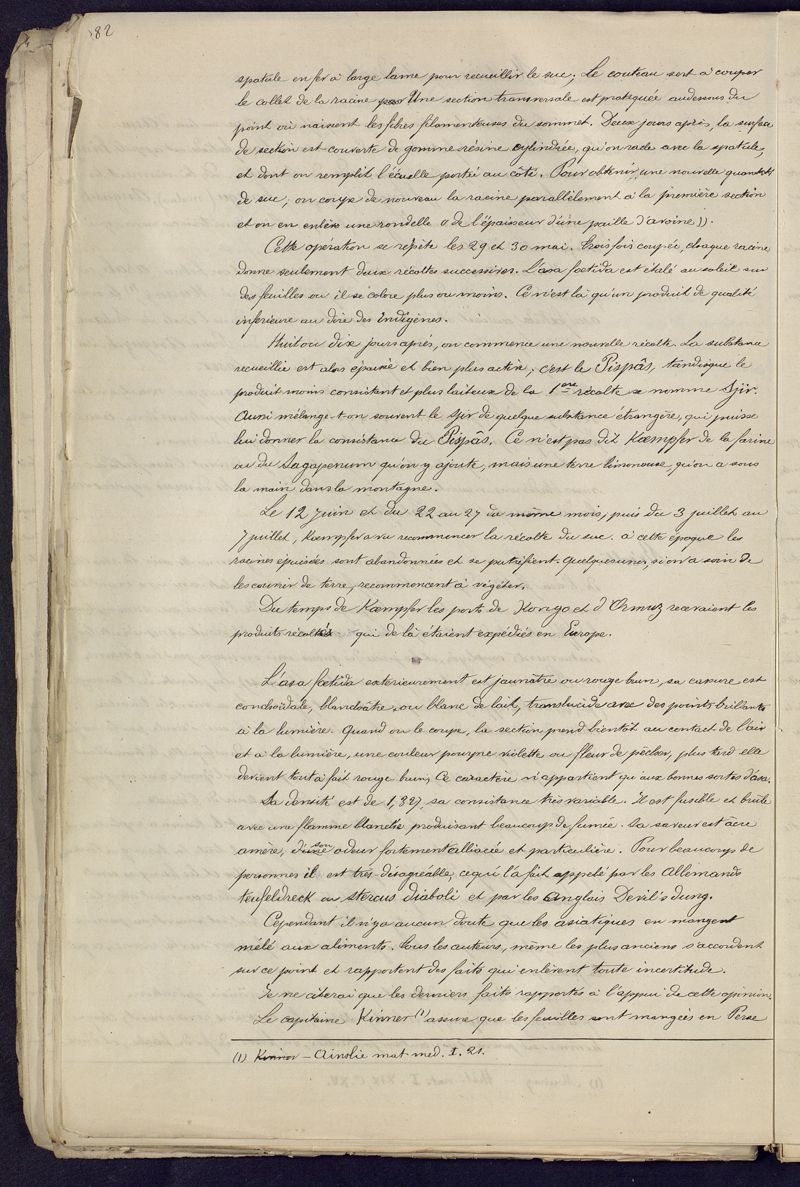 82
spatule en fer à large lame pour recueillir le suc; Le couteau sert à couper
le collet de la racine Une section transversale est pratiquée audessous du
point où naissent les fibres filamenteuses du sommet. Deux jours après, la surface
de section est couverte de gomme-résine cylindrée, qu'on racle avec la spatule,
et dont on remplit l'écuelle portée au côté. Pour obtenir, une nouvelle quantité
de suc; on coupe de nouveau la racine parallèlement à la première section
et on en enlève une rondelle « de l'épaisseur d'une paille d'avoine )).
Cette opération se répète les 29 et 30 mai. Trois fois coupée, chaque racine
donne seulement deux récoltes successives. L'asa fœtida est étalé au soleil sur
des feuilles où il se colore plus ou moins. Ce n'est là qu'un produit de qualité
inférieure au dire des indigènes.
Huit ou dix jours après, on commence une nouvelle récolte. La substance
recueillie est alors épaissie et bien plus active, c'est le Pispâs, tandisque le
produit moins consistant et plus laiteux de la 1ère récolte se nomme Sjir.
Aussi mélange-t-on souvent le sjir de quelque substance étrangère, qui puisse
lui donner la consistance du Pispâs. Ce n'est pas dit Kœmpfer de la farine
ou du Sagapenum qu'on y ajoute, mais une terre limoneuse, qu'on a sous
la main dans la montagne.
Le 12 Juin et du 22 au 27 du même mois, puis du 3 juillet au
7 juillet, Kœmpfer a vu recommencer la récolte du suc. à cette époque les
racines épuisées sont abandonnées et se putréfient. Quelques unes, si on a soin de
les couvrir de terre, recommencent à végéter.
Du temps de Kœmpfer les ports de Kongo et d'Ormuz recevaient les
produits récoltés qui de là étaient expédiés en Europe.
L'asa fœtida exterieurement est jaunâtre ou rouge brun, sa cassure est
conchoïdale, blanchâtre, ou blanc de lait, translucide avec des points brillants
à la lumière. Quand on le coupe, la section prend bientôt au contact de l'air
et à la lumière, une couleur pourpre violette ou fleur de pêcher, plus tard elle
devient tout à fait rouge brun; Ce caractère n'appartient qu'aux bonnes sortes d'asa.
Sa densité est de 1,327, sa consistance très variable. Il est fusible et brûle
avec une flamme blanche produisant beaucoup de fumée. Sa saveur est âcre
amère, son odeur fortement alliacée et particulière. Pour beaucoup de
personnes il est très-désagréable, ce qui l'a fait appelé par les Allemands
teufeldreck ou stercus diaboli et par les anglais Devil's dung.
Cependant il n'y a aucun doute que les asiatiques en mangent
mêlé aux aliments. Tous les auteurs, même les plus anciens s'accordent
sur ce point et rapportent des faits qui enlèvent toute incertitude.
Je ne citerai que les derniers faits rapportés à l'appui de cette opinion.
Le capitaine Kinner (1) assure que les feuilles sont mangées en Perse
(1) Kinner – Ainslie mat. med. I. 21.